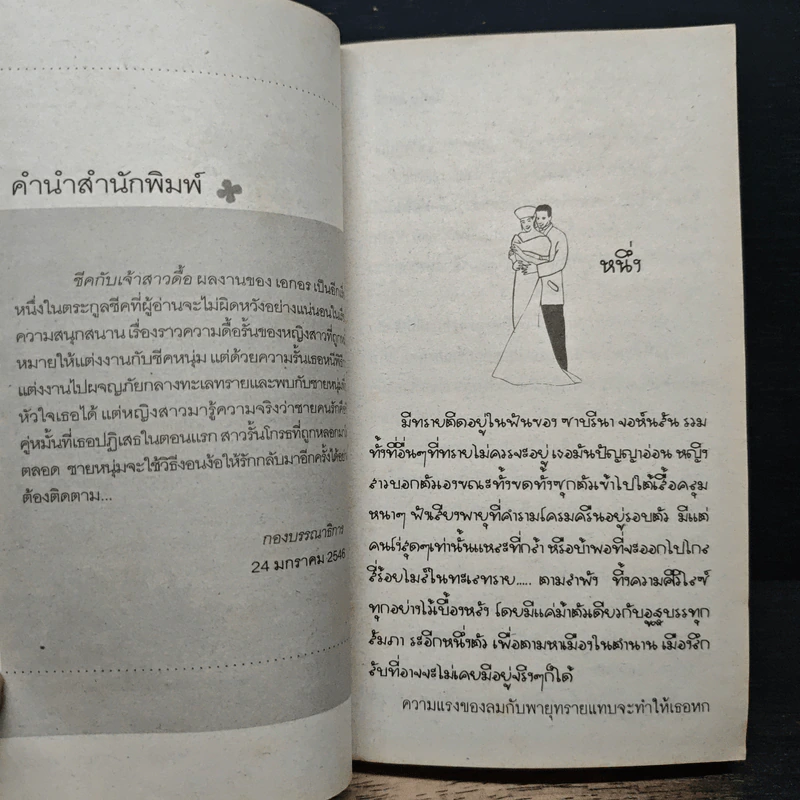 คำนำสำนักพิมพ์
ชีคกับเจ้าสาวดื้อ ผลงานของ เอกอร เป็นอีก
หนึ่งในตระกูลชีคที่ผู้อ่านจะไม่ผิดหวังอย่างแน่นอน
ความสนุกสนาน เรื่องราวความดื้อรั้นของหญิงสาวที่ถูก
หมายให้แต่งงานกับชีคหนุ่ม แต่ด้วยความรั้นเธอหนี
แต่งงานไปผจญภัยกลางทะเลทรายและพบกับชายหนุ่ม
หัวใจเธอได้ แต่หญิงสาวมารู้ความจริงว่าชายคนรัก
คู่หมั้นที่เธอปฏิเสธในตอนแรก สาวรั้นโกรธที่ถูกหลอก
ตลอด ชายหนุ่มจะใช้วิธีง้อให้รักกลับมาอีกครั้งได้
ต้องติดตาม...
กองบรรณาธิการ
24 มกราคม 2546
หนึ่ง
มีทรายติดอยู่ในฟันของ ซาบรีนา จอห์นสัน รวม
ทั้งที่อื่นๆที่ทรายไม่ควรจะอยู่ เธอมันปัญญาอ่อน หญิง
สาวบอกตัวเองขณะทั้งขดทั้งซุกตัวเข้าไปใต้เสื้อคลุม
หนาๆ ฟังเสียงพายุที่คำรามโครมครืนอยู่รอบตัว มีแต่
คนโง่สุดๆเท่านั้นแหละที่กล้า หรือบ้าพอที่จะออกไปไกล
สี่ร้อยไมล์ในทะเลทราย..... ตามลำพัง ทิ้งความศิวิไลซ์
ทุกอย่างไว้เบื้องหลัง โดยมีแค่ม้าตัวเดียวกับอูฐบรรทุก
สัมภา ระอีกหนึ่งตัว เพื่อตามหาเมืองในตำนาน เมืองลึก
ลับที่อาจจะไม่เคยมีอยู่จริงๆก็ได้
ความแรงของลมกับพายุทรายแทบจะทำให้เธอหก